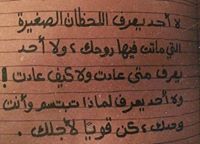 لا أحد يعرف اللحظات الصغيرة
التي ماتت فيها روحك ، ولا أحد
يعرف متى عادت ولا كيف عادت !
ولا أحد يعرف لماذا تبتسم وأنت
وحدك ، كن قويًا لأجلك .